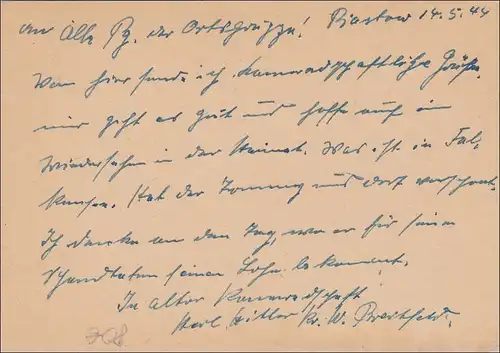 an Alle Pg. der Ortsgruppe! Piastow 14.5.44
Von hier sende ich kameradschaftliche Grüße.
mir geht es gut und hoffe auf ein
Wiedersehn in der Heimat. Was ist in Fal-
kensee. Hat der Tommy uns dort verschont.
Ich denke an den Tag, wo er für seine
Schandtaten seinen Lohn bekommt.
In alter Kameradschaft
Heil Hitler W. Breitfeld.
708